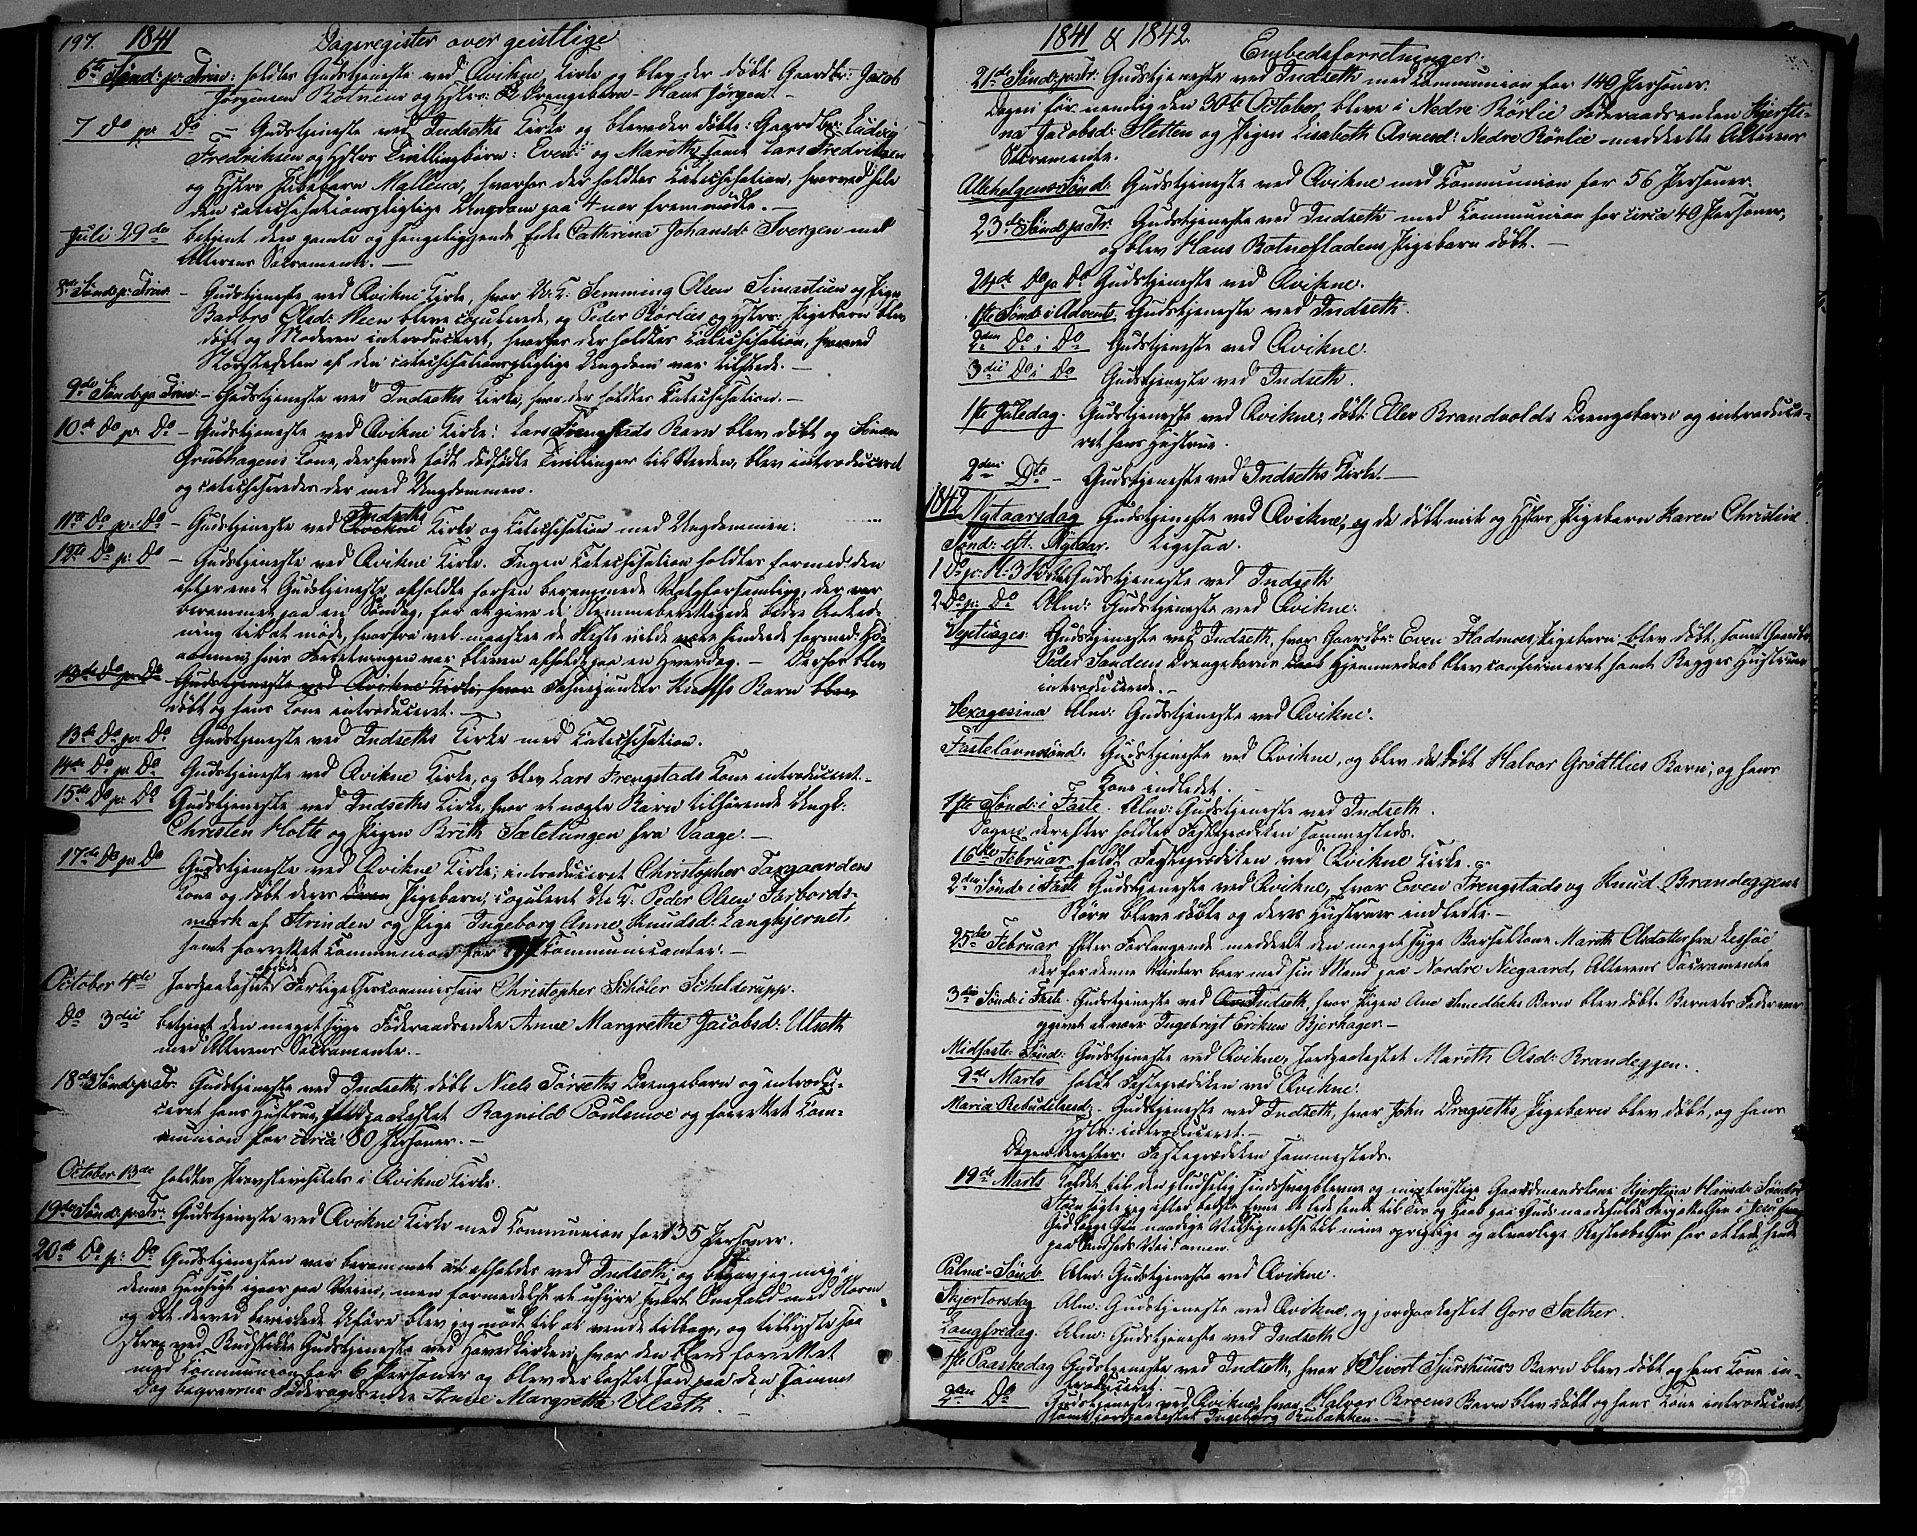 197. 1841 Dagsregister over geistlige
6te Sønd: p: Trin: holdtes Gudstjeneste ved Qvikne Kirke og blev der døbt Gaardbr: Jacob
Jørgensen Botnens og Hstrs: Drengebarn – Hans Jørgen. –
7 Do p: Do – Gudstjeneste ved Indseths Kirke og bleve der døbte: Gaardbr: Ludvig
Fredriksen og Hstrs Tvillingbørn: Even og Marith, samt Lars Fredriksen
og Hstrs Pigebarn Mallena, hvorhos der holdtes Catechisation, hvorved hele
den catechisationspligtige Ungdom paa 4 nær fremmødte. –
Juli 29de betjent den gamle og sengeliggende Enke Cathrina Johansd: Svergen med
Alterens Sacramente. –
8de Sønd: p: Trin: – Gudstjeneste ved Qvikne Kirke, hvor U: K: Semming Olsen Simastuen og Pige
Barbro Olsd: Meen bleve copulerede, og Peder Rørlies og Hstrs: Pigebarn blev
døbt og Moderen introduceret, hvorhos der holdtes Catechisation, hvorved
Størstedelen af den catechisationspligtige Ungdom var tilstede. –
9de Sønd: p: Trin: – Gudstjeneste ved Indseths Kirke, hvor der holdtes Catechisation. –
10de Do p: Do – Gudstjeneste ved Qvikne Kirke: Lars Frengstads Barn blev døbt og Simen
Grubhagens Kone, der havde født dødfødte Tvillinger til Verden, blev introduceret
og catechiseredes der med Ungdommen.
11te Do p: Do – Gudstjeneste ved Indseths Kirke og Catechisation med Ungdommen.
12te Do p: Do – Gudstjeneste ved Qvikne Kirke. Ingen Catechisation holdtes formed den
efter endt Gudstjeneste afholdte forhen berammede Valgforsamling, der var
berammet paa en Søndag, for at give de Stemmeberettigede bedre Anled-
ning til at møde, hvorfra de fleste vilde være hindrede formed:
hvis Forretningen var bleven afholdt paa en Hverdag. – Derhos blev
13de Do p: Do Gudstjeneste ved Qvikne Kirke, hvor Barn blev
døbt og hans Kone introduceret. –
13de Do p: Do Gudstjeneste ved Indseths Kirke med Catechisation.
14de Do p: Do Gudstjeneste ved Qvikne Kirke, og blev Lars Frengstads Kone introduceret. –
15de Do p: Do Gudstjeneste ved Indseths Kirke, hvor et uægte Barn tilhørende Ungk:
Christen Holte og Pigen Brith Sæletungen fra Vaage. –
17de Do p: Do Gudstjeneste ved Qvikne Kirke; introduceret Christopher Taxgaardens
Kone og døbt deres Pigebarn; copuleret U: K: Peder Olsen Forbords-
mark af Strinden og Pige Ingeborg Anne Knudsd: Langkjernet,
samt forrettet Communion for Communicanter. –
October 4de Jordpaakastet afdøde Forligelsescommissair Christopher Schiøler Schelderupp.
Do 3die betjent den meget syge Føderaadsenke Anne Margrethe Jacobsd: Ulseth
med Alterens Sacramente. –
18de Sønd: p: Tr: Gudstjeneste ved Indseth; døbt Niels Tørseths Drengebarn og introdu-
ceret hans Hustrue, jordpaakastet Ragnild Poulsmoe og forrettet Com-
munion for circa 80 Personer. –
October 13de holdtes Provstevisitats i Qvikne Kirke.
19de Sønd: p: Tr: Gudstjeneste ved Qvikne Kirke med Communion for 135 Personer.
20de Do p: Do Gudstjenesten var berammet at afholdes ved Indseth, og begav jeg mig i
denne Hensigt igaar paa Veien, men formedelst et uhyre stærkt Sneefald med Storm
og det derved bevirkede Uføre blev jeg nødt til at vende tilbage, og tillystes saa
strax ved Budstikke Gudstjeneste ved Hovedkirken, hvor den blev forrettet
med Communion for 6 Personer og blev der kastet Jord paa den samme
Dag begravne Føderaadsenke Anne Margrethe Ulseth. –
1841 & 1842. Embedsforretninger.
21de Sønd: p: Tr: Gudstjeneste ved Indseth med Communion for 140 Personer.
Dagen før nemlig den 30te October bleve i Nedre Rørlie Føderaadsenken Kjersti-
na Jacobsd: Sletten og Pigen Lisabeth Arnesd: Nedre Rørlie meddeelte Alterens
Sacramente.
Allehelgens Sønd: Gudstjeneste ved Qvikne med Communion for 56 Personer.
23de Sønd: p: Tr: Gudstjeneste ved Indseth med Communion for circa 40 Personer,
og blev Hans Botnesladens Pigebarn døbt. –
24de Do p: Do Gudstjeneste ved Qvikne.
1ste Sønd: i Advent: Gudstjeneste ved Indseth.
2den Do i Do Gudstjeneste ved Qvikne.
3die Do i Do Gudstjeneste ved Indseth.
1ste Juledag. Gudstjeneste ved Qvikne; døbt Ellev Brandvolds Drengebarn og introduce-
ret hans Hustrue.
2den Do – Gudstjeneste ved Indseths Kirke. –
1842 Nytaarsdag Gudstjeneste ved Qvikne, og da døbt mit og Hstrs Pigebarn Karen Christine.
Sønd: eft: Nytaar. Ligesaa.
1 Do p: H: 3 K: Gudstjeneste ved Indseth
2 Do p: Do Alm: Gudstjeneste ved Qvikne.
Gudstjeneste ved Indseth, hvor Gaardbr: Even Fladmoes Pigebarn blev døbt, samt Gaardbr:
Peder Sandens Drengebarns Hjemmedaab blev confirmeret samt Begges Hustruer
introducerede. –
Sexagesima Alm: Gudstjeneste ved Qvikne.
Fastelavnssønd: Gudstjeneste ved Qvikne, og blev da døbt Halvor Grødtlies Barn, og hans
Kone indledet.
1ste Sønd: i Faste. Alm: Gudstjeneste ved Indseth.
Dagen derefter holdtes Fastepræediken sammesteds.
16de Februar holdt Fastepræediken ved Qvikne Kirke.
2den Sønd: i Faste Gudstjeneste ved Qvikne, hvor Even Frengstads og Knud Brandeggens
Børn bleve døbte og deres Hustruer indledte. –
25de Februar Efter Forlangende meddeelt den meget syge Barselkone Marith Olsdatter fra Lesjøe
der for denne Vinter boer med sin Mand paa Nordre Neegaard, Alterens Sacramente
3die Sønd: i Faste. Gudstjeneste ved Indseth, hvor Pigen Ane Smedlies Barn blev døbt. Barnets Fader var
opgivet at være Ingebrigt Eriksen Bjerhagen. –
Midfaste Sønd: Gudstjeneste ved Qvikne, Jordpaakastet Marith Olsd: Brandeggen.
9de Marts holdt Fastepræediken ved Qvikne.
Maria Bebudelsesd: – Gudstjeneste ved Indseth, hvor John Dragseths Pigebarn blev døbt, og hans
Hstr: introduceret. –
Dagen derefter: Fastepræediken sammesteds.
19de Marts kaldet til den pludselig sindssvagblevne og mistrøstige Gaardmandskone Kjerstina Hansd: Søndre
Stoen søgte jeg efter bedste Evne at lede hende til Tro og Haab paa Guds naadefulde Forjættelser i Jesu Navn
Gud lægge sin naadige Velsignelse til mine oprigtige og alvorlige Bestræbelser for at lede hende
paa Sandheds Vei! amen.
Palme-Sønd: Alm: Gudstjeneste ved Qvikne.
Skjertorsdag Alm: Gudstjeneste ved Qvikne, og jordpaakastet Goro Sæther.
Langfredag. Alm: Gudstjeneste ved Indseth
1ste Paaskedag Gudstjeneste ved Indseth, hvor Sivert Barn blev døbt og hans Kone in-
troduceret. –
2den Do Gudstjeneste ved Qvikne, hvor Halvor Broens Barn blev døbt og hans Kone introduceret,
samt jordpaakastet Ingeborg Rubakken. –